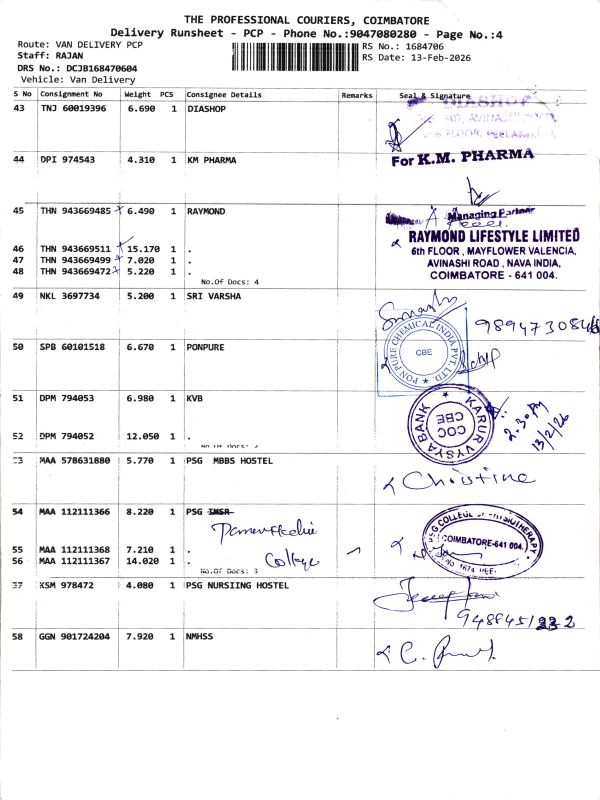 THE PROFESSIONAL COURIERS, COIMBATORE
Delivery Runsheet - PCP - Phone No.:9047080280 - Page No.:4
Route: VAN DELIVERY PCP
RS No.: 1684706
Staff: RAJAN
RS Date: 13-Feb-2026
DRS No.: DCJB168470604
Vehicle: Van Delivery
S No Consignment No Weight PCS Consignee Details Remarks Seal & Signature
43 TNJ 60019396 6.690 1 DIASHOP
DIASHOP
AVINASHI ROAD,
FLOOR, PEELAMEDU
44 DPI 974543 4.310 1 KM PHARMA
For K.M. PHARMA
Managing Partner
45 THN 943669485 6.490 1 RAYMOND
RAYMOND LIFESTYLE LIMITED
6th FLOOR, MAYFLOWER VALENCIA,
AVINASHI ROAD, NAVA INDIA,
COIMBATORE - 641 004.
46 THN 943669511 15.170 1 .
47 THN 943669499 7.020 1 .
48 THN 943669472 5.220 1 .
No.Of Docs: 4
49 NKL 3697734 5.200 1 SRI VARSHA
50 SPB 60101518 6.670 1 PONPURE
PON PURE CHEMICAL INDIA PVT. LTD.
CBE
51 DPM 794053 6.980 1 KVB
KARUR VYSYA BANK
COC
CBE
2.30 PM
13/2/26
52 DPM 794052 12.050 1 .
No.Of Docs: 2
53 MAA 578631880 5.770 1 PSG MBBS HOSTEL
Christina
54 MAA 112111366 8.220 1 PSG IMSR
PSG COLLEGE OF PHYSIOTHERAPY
COIMBATORE-641 004.
55 MAA 112111368 7.210 1 .
56 MAA 112111367 14.020 1 .
College
No.Of Docs: 3
57 KSM 978472 4.080 1 PSG NURSIING HOSTEL
58 GGN 901724204 7.920 1 NMHSS